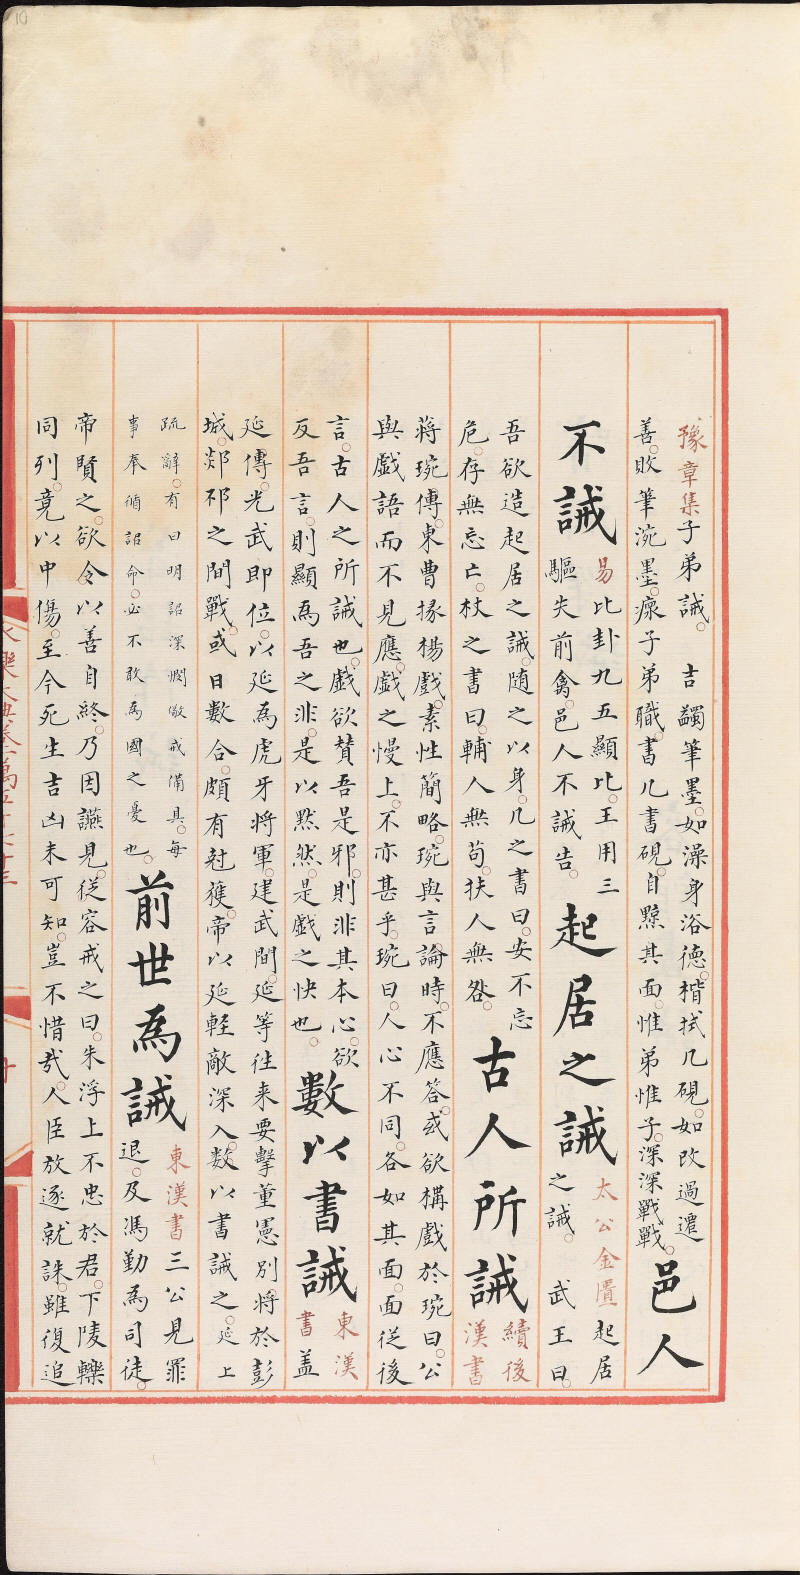 豫章集子弟誡。 吉蠲筆墨。如澡身浴德。楷拭几硯。如改過遷
善。敗筆涴墨。瘝子弟職。書几書硯。自黥其面。惟弟惟子。深深戰戰。
邑人不誡
易比卦九五顯比。王用三
驅失前禽。邑人不誡告。
起居之誡
太公金匱起居
之誡。 武王曰。
吾欲造起居之誡。随之以身。几之書曰。安不忘
危。存無忘亡。杖之書曰。輔人無苟。扶人無咎。
古人所誡
續後
漢書
蔣琬傳。東曹掾楊戲。素性簡略。琬與言論。時不應答。或欲構戲於琬曰。公
與戲語而不見應。戲之慢上。不亦甚乎。琬曰。人心不同。各如其面。面從後
言。古人之所誡也。戲欲賛吾是邪。則非其本心。欲
反吾言。則顯為吾之非。是以默然。是戲之快也。
數以書誡
東漢
書蓋
延傳。光武即位。以延為虎牙將軍。建武間。延等往来要擊董憲别將於彭
城。郯邳之間戰。或日數合。頗有尅獲。帝以延輕敵深入。數以書誡之。延上
疏辭。有曰明詔深憫儆戒備具。每
事奉循詔命。必不敢為國之憂也。
前世為誡
東漢書三公見罪
退。及馮勤為司徒。
帝賢之。欲令以善自終。乃因讌見。從容戒之曰。朱浮上不忠於君。下陵轢
同列。竟以中傷。至今死生吉凶未可知。豈不惜哉。人臣放逐就誅。雖復追